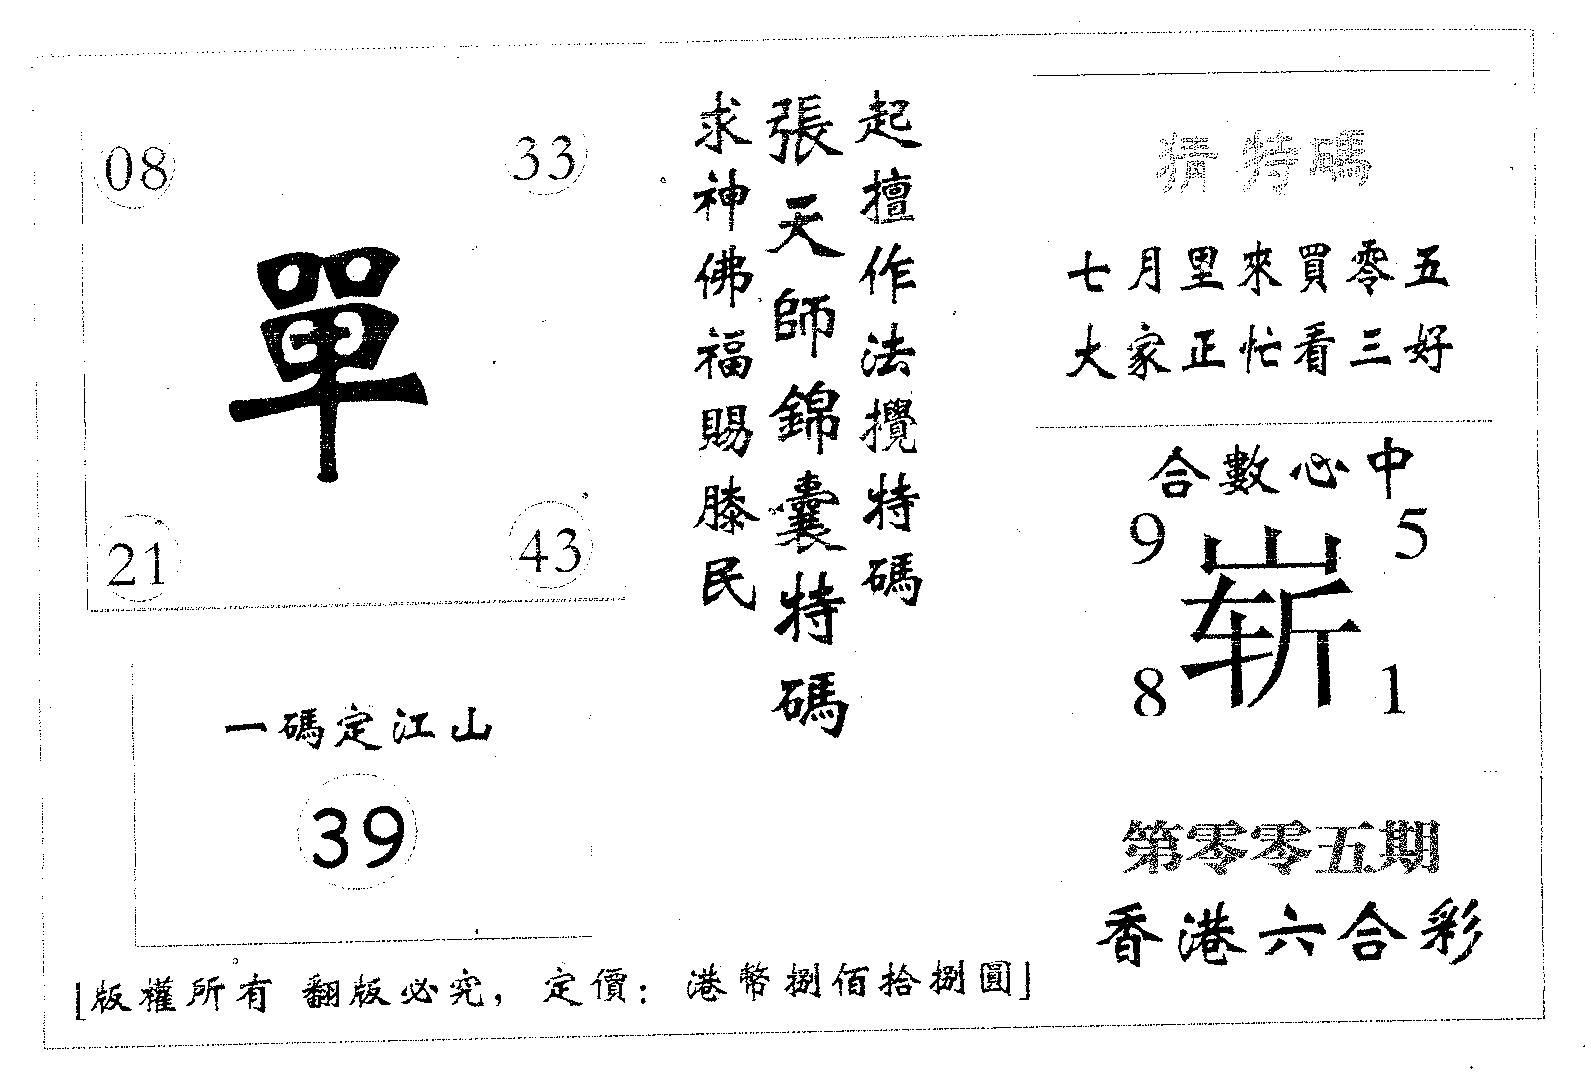 猜特碼
七月里來買零五
大家正忙看三好
合數必中
9 5
崭
8 1
第零零五期
香港六合彩
起擅作法攪特碼
張天師錦囊特碼
求神佛福賜膝民
08 33
單
21 43
一碼定江山
39
[版權所有 翻版必究，定價：港幣捌佰拾捌圓]